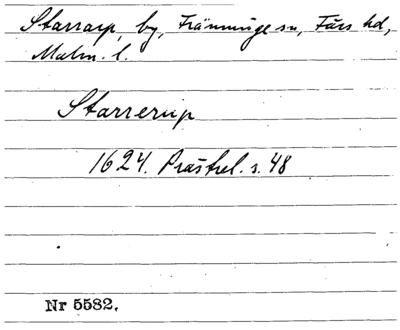 Starrarp, by, Tränninge sn, Färs hd,
Malm. l.
Starrerup
1624. Prästrel. s. 48
Nr 5582.